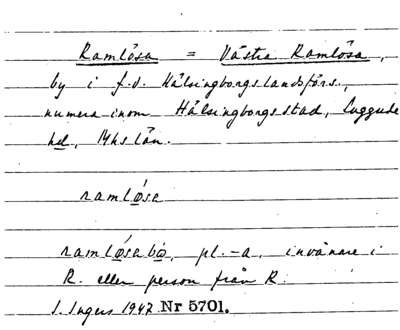 Ramlösa = Västra Ramlösa,
by i f.d. Hälsingborgs landsförs.,
numera inom Hälsingborgs stad, Luggude
hd, Mhs län.
ramløse
ramløsabo, pl. -a, invånare i
R. eller person från R.
I. Ingers 1947. Nr 5701.